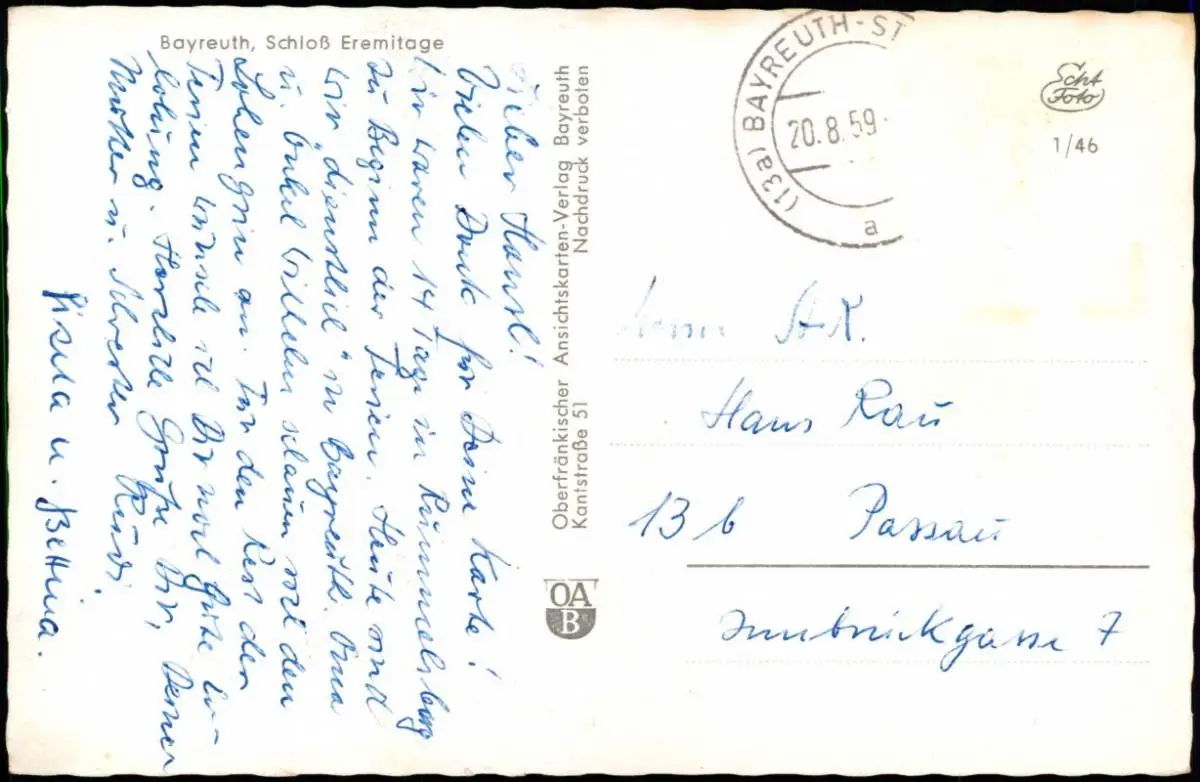 Bayreuth, Schloß Eremitage
Lieber Hansl!
Vielen Dank für Deine Karte!
Wir waren 14 Tage in Rummelsberg
zu Beginn der Ferien. Heute sind
wir "dienstlich" in Bayreuth. Oma
u. Onkel Wilhelm schauen sich den
Lohengrin an. Für den Rest der
Ferien wünsche ich Dir noch gute Er-
holung. Herzliche Grüße Dir, Deiner
Mutter u. Schwester
u. Bettina.
Oberfränkischer Ansichtskarten-Verlag Bayreuth
Kantstraße 51 Nachdruck verboten
OA
B
(13a) BAYREUTH-ST
20.8.59
a
Echt
Foto
1/46
Herrn
Hans Rau
13b Passau
Innbrückgasse 7